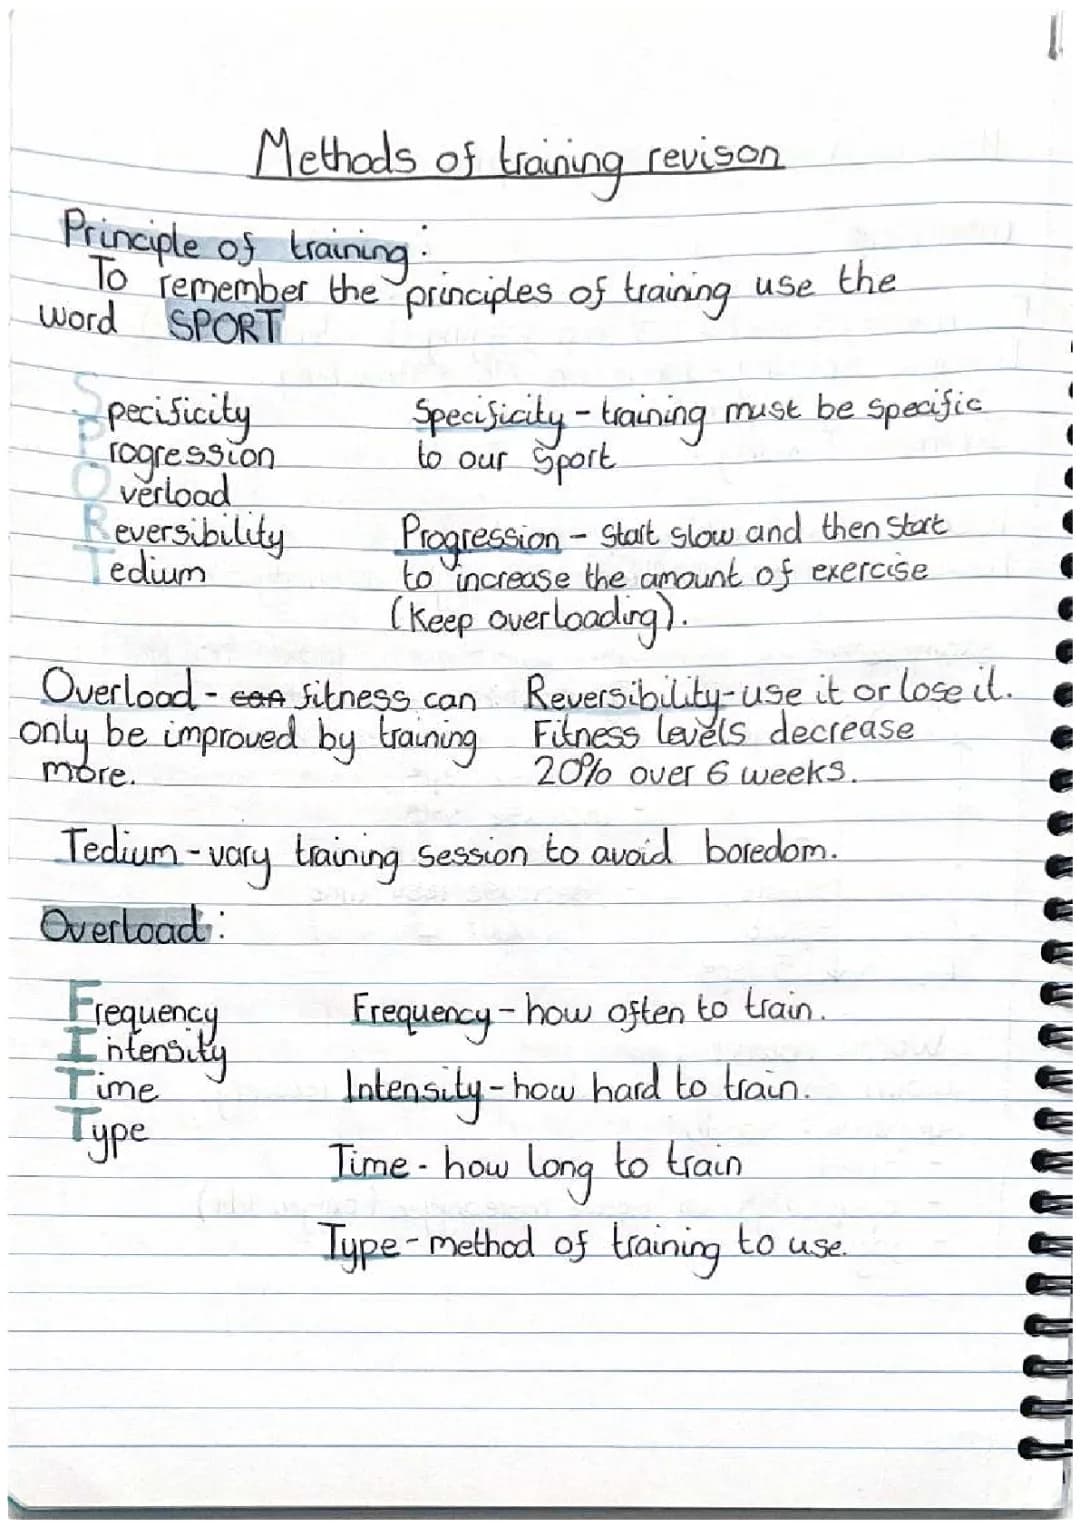 Methods of training revison
Principle of training:
To remember the principles of training use the
word SPORT
Specificity
Progression
Overload
Reversibility
Tedium
Specificity - training must be specific
to our sport
Progression - Start slow and then start
to increase the amount of exercise
(Keep overloading).
Overload - can fitness can
only be improved by training
more.
Reversibility - use it or lose it.
Fitness levels decrease
20% over 6 weeks.
Tedium - vary training session to avoid boredom.
Overload:
Frequency
Intensity
Time
Type
Frequency - how often to train.
Intensity - how hard to train.
Time - how long to train
Type - method of training to use.